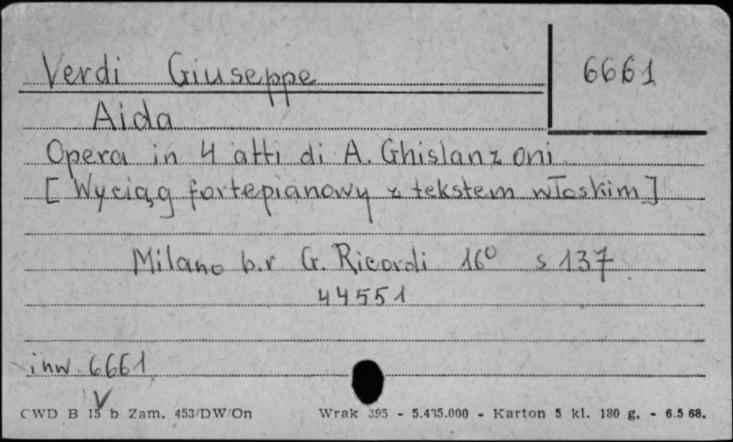 Verdi Giuseppe 6661
Aida
Opera in 4 atti di A. Ghislanzoni
[Wyciąg fortepianowy z tekstem włoskim]
Milano b.r G. Ricordi 16° s 137
44551
inw. 6661
CWD B 15 b Zam. 453/DW/On Wrak 395 - 5.435.000 - Karton 5 kl. 180 g. - 6.5 68.